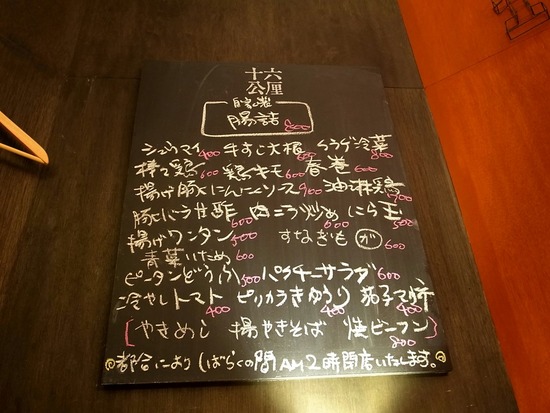 十六
公厘
自家
腸詰 800
シュウマイ 400 牛すじ大根 600 クラゲ冷菜 800
棒々鶏 600 鶏キモ 600 春巻 600
揚げ豚にんにくソース 900 油淋鶏 900
豚バラ甘酢 600 肉ニラ炒め 600 にら玉 500
揚げワンタン 500 すなぎも が 600
青菜いため 600
ピータンどうふ 500 パクチーサラダ 600
冷やしトマト 400 ピリカラきゅうり 400 茄子マリネ 400
[やきめし 揚やきそば 焼ビーフン] 800
◎都合によりしばらくの間AM2時閉店いたします。◎